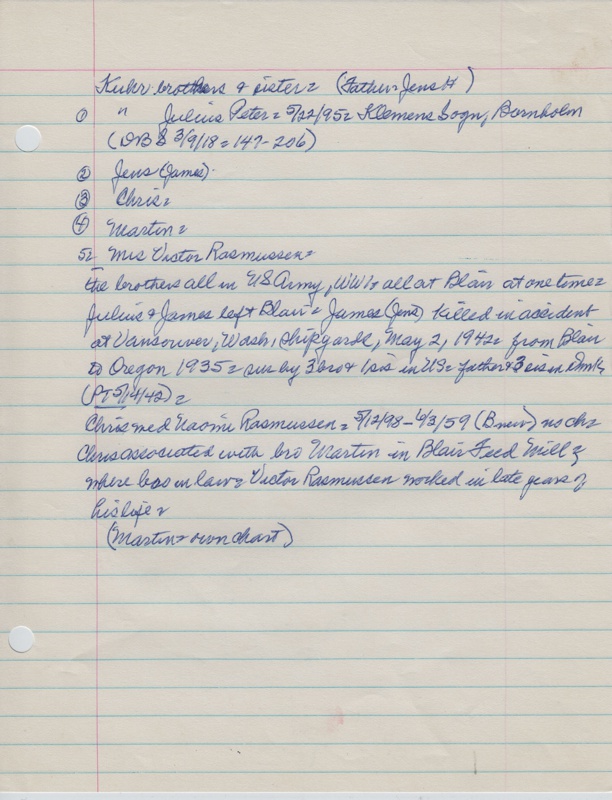 Kuhr brothers & sister = (Father = Jens H)
① " Julius Peter = 5/22/95 = Klemens Sogn, Bornholm
(DBS 3/9/18 = 147-206)
② Jens (James)
③ Chris =
④ Martin =
5 = Mrs Victor Rasmussen =
The brothers all in US Army, WW1 = all at Blair at one time =
Julius & James left Blair = James (Jens) killed in accident
at Vansouver, Wash, shipyards, May 2, 1942 = from Blair
to Oregon 1935 = sur by 3 bro & 1 sis in US = father & 3 sis in Dmk
(PT 5/14/42) =
Chris med Naomi Rasmussen = 5/12/98 - 6/3/59 (Bmew) no ch =
Chris associated with bro Martin in Blair Feed Mill &
where bro in law = Victor Rasmussen worked in late years of
his life =
(Martin = own chart)